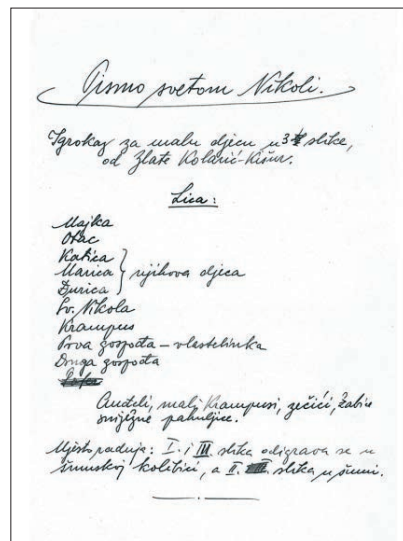 Pismo svetom Nikoli.
Igrokaz za malu djecu u 3 slike,
od Zlate Kolarić-Kišur.
Lica:
Majka
Otac
Katica
Marica } njihova djeca
Đurica
Sv. Nikola
Krampus
Prva gospođa – vlastelinka
Druga gospođa
Anđeli, mali Krampusi, zečići, žabice
snježne pahuljice.
Mjesto radnje: I. i III. slika odigrava se u
šumskoj kolibici, a II. slika u šumi.